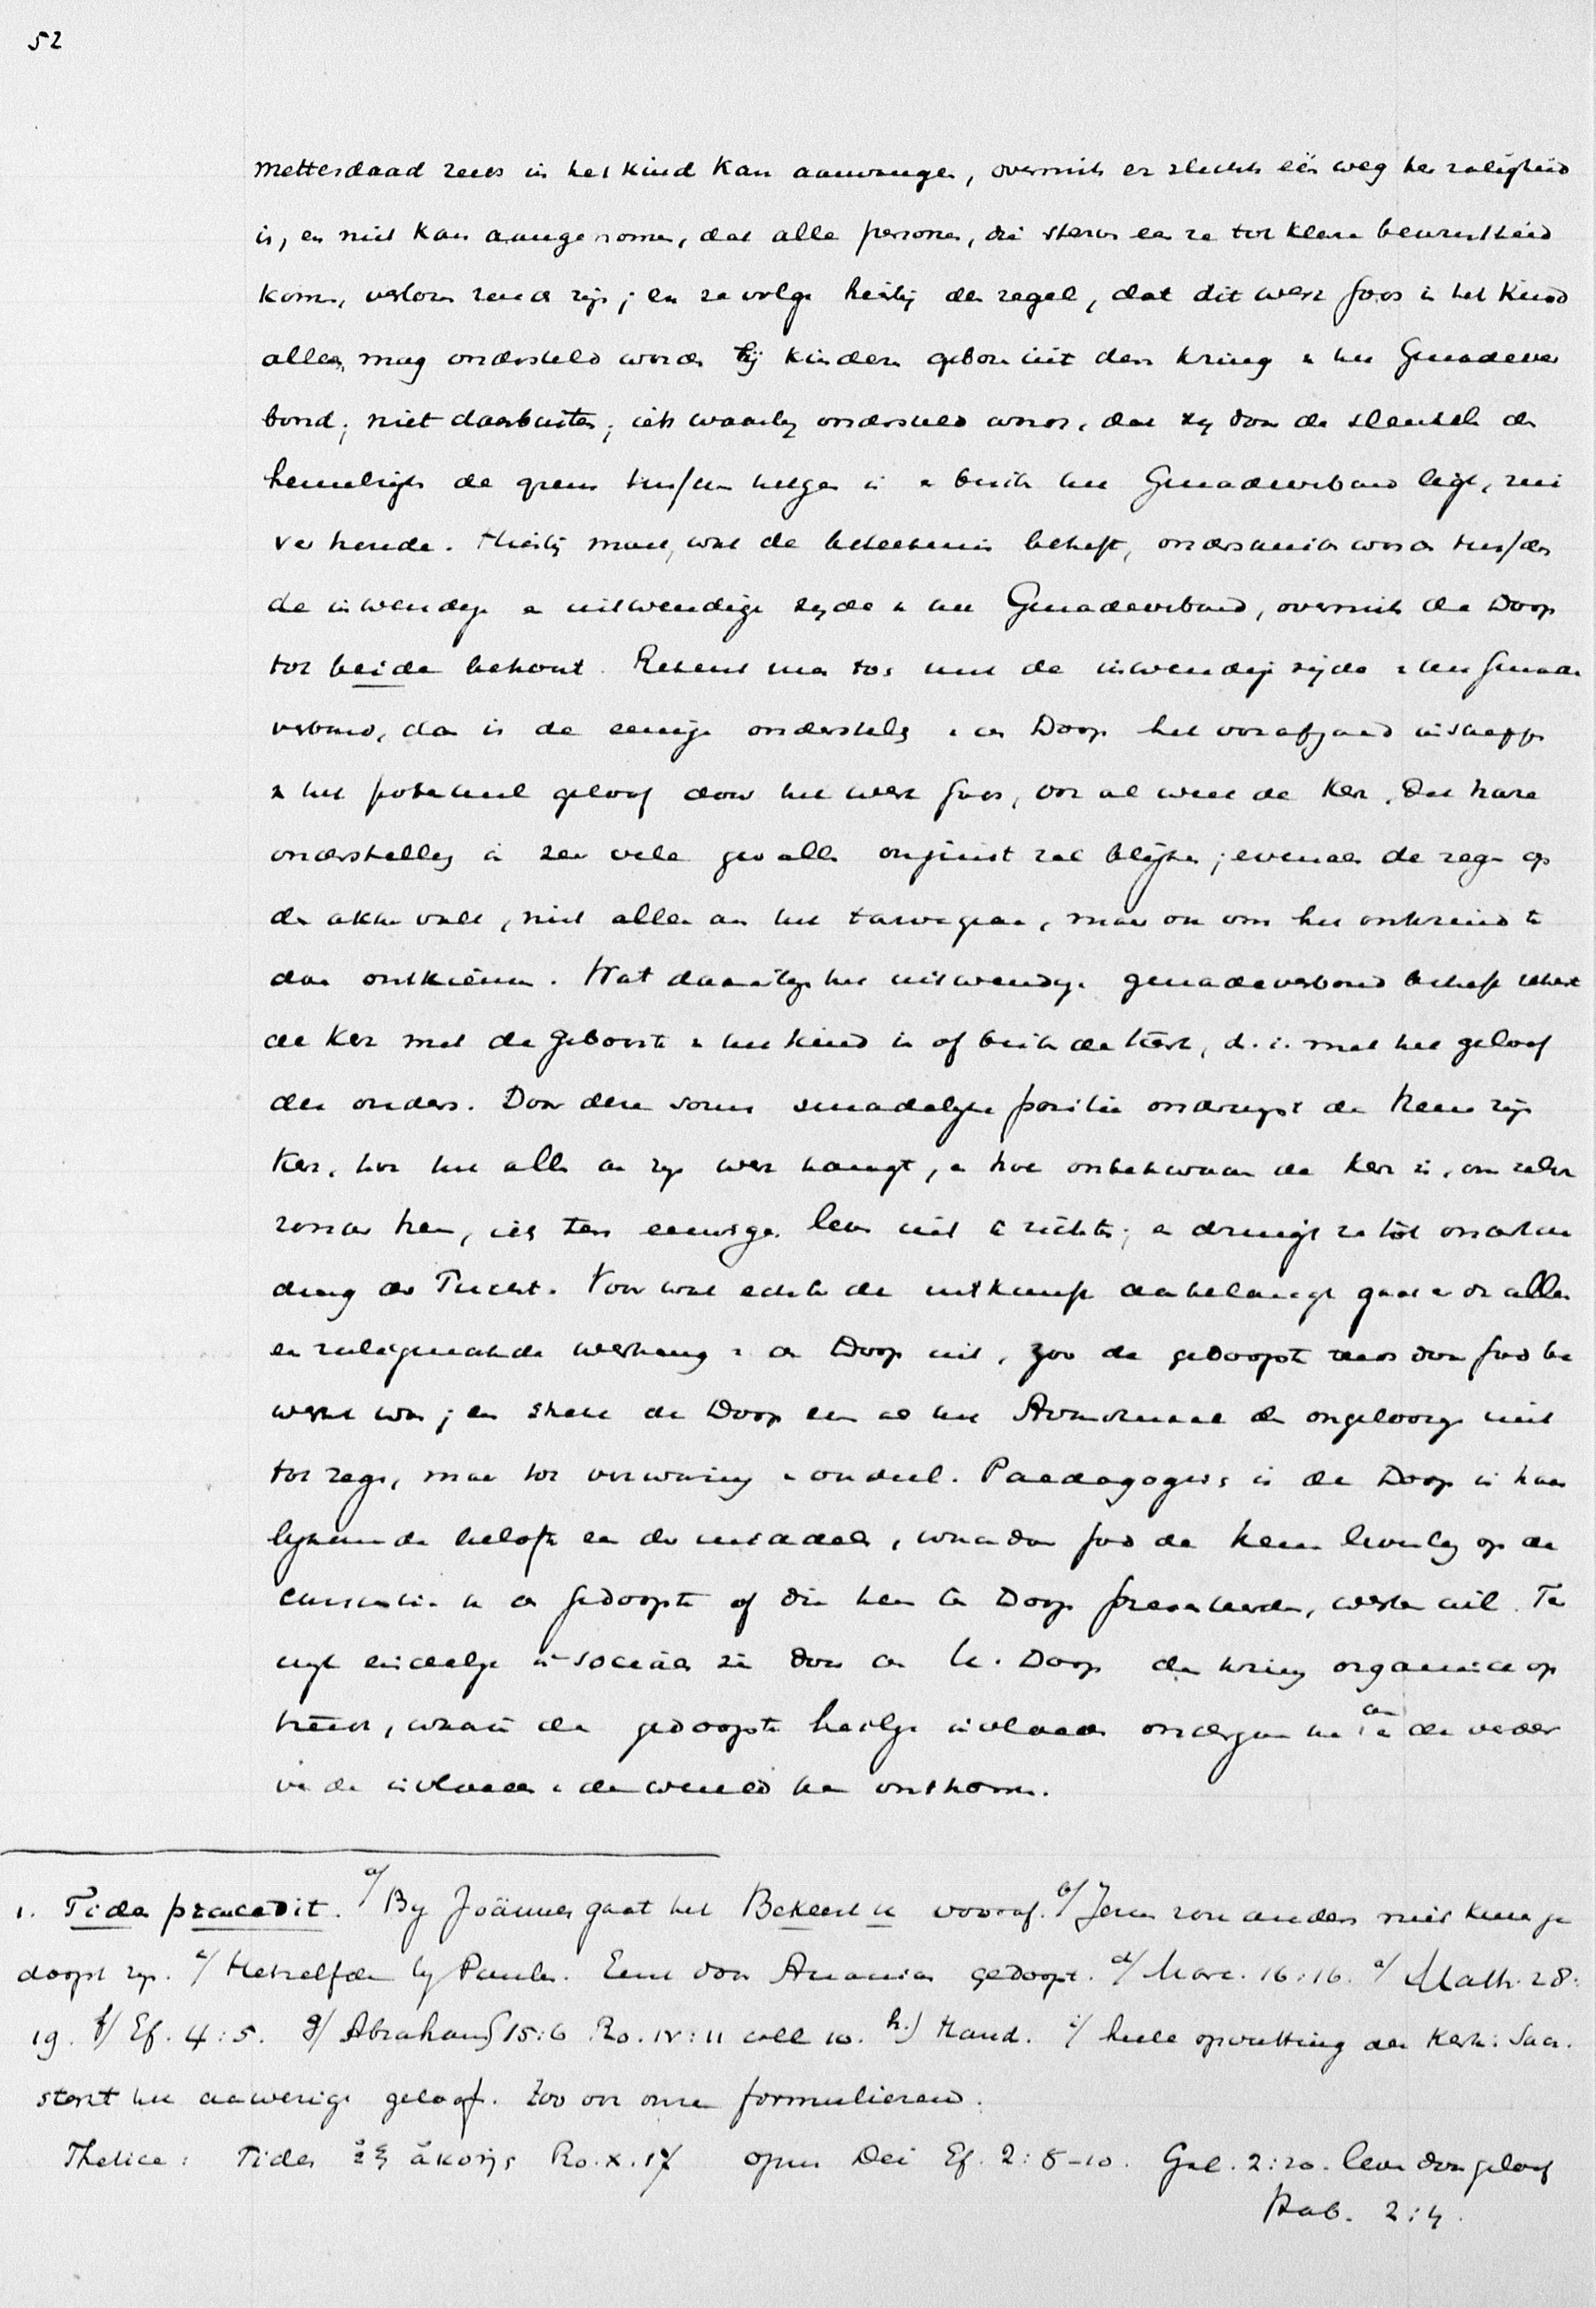 52
metterdaad reeds in het kind kan aanvangen, overmits er slechts één weg ter zaligheid
is, en niet kan aangenomen, dat alle personen, die sterven eer ze tot klare bewustheid
komen, verloren zouden zijn; en ze volge hierbij den regel, dat dit werk Gods in het kind
alleen mag ondersteld worden bij kinderen geboren uit den kring v. het Genadever
bond; niet daarbuiten; iets waarbij ondersteld wordt, dat zij door de sleutelen des
hemelrijks de grens tusschen hetgeen in en buiten het Genadeverbond ligt, zuiver
houde. Hierbij moet, wat de beteekenis betreft, onderscheiden worden tusschen
de inwendige en uitwendige zijde v. het Genadeverbond, overmits de Doop
tot beide behoort. Rekent men dus met de inwendige zijde v. het Genade
verbond, dan is de eenige onderstelling v. den Doop het voorafgaand inscheppen
v. het potentieel geloof door het werk Gods, ook al weet de Kerk, dat hare
onderstelling in zeer vele gevallen onjuist zal blijken; evenals de regen op
den akker valt, niet alleen om het tarwegraan, maar ook om het onkruid te
doen ontkiemen. Wat daarentegen het uitwendige genadeverbond betreft rekent
de Kerk met de geboorte v. het kind in of buiten de Kerk, d. i. met het geloof
der ouders. Door deze soms smadelijke positie ondervindt de Heere zijn
Kerk, hoe het alles aan zijn werk hangt, en hoe onbekwaam de Kerk is, om zelve
zonder hem, iets ten eeuwigen leven uit te richten; en dringt ze tot onderhou
ding der Tucht. Voor wat echter de uitkomst aanbelangt gaat er dan alleen
een zaligmakende werking v. den Doop uit, zoo de gedoopte reeds door God be
werkt was; en strekt de Doop even als het Avondmaal den ongeloovige niet
tot zegen, maar tot verzwaring v. oordeel. Paedagogisch is de Doop in haar
blijvende belofte een der middelen, waardoor God de Heere levenslang op de
conscientie v. den gedoopte of die hem ten Doop presenteerden, werken wil. Ter
wijl eindelijk in socialen zin door den H. Doop de kring organisch op
treedt, waarin de gedoopte heilige invloeden ondergaan kan en de verder
vende invloeden v. de wereld kan ontkomen.
1. Fides praecedit. a/ By Joännes gaat het Bekeert u vooraf. b/ Jezus zou anders niet kunnen ge
doopt zijn. c/ Hetzelfde bij Paulus. Eerst door Ananias gedoopt. d/ Marc. 16:16. e/ Matth. 28:
19. f/ Ef. 4:5. g/ Abraham G 15:6 Ro. IV:11 coll 10. h.) Hand. i/ heele opvatting der Kerk: Sacr.
sterkt het aanwezige geloof. Zoo ook onze formulieren.
Thetice: Fides ἐξ ἀκοῆς Ro. X. 17 opus Dei Ef. 2:8-10. Gal. 2:20. leven door geloof
Hab. 2:4.